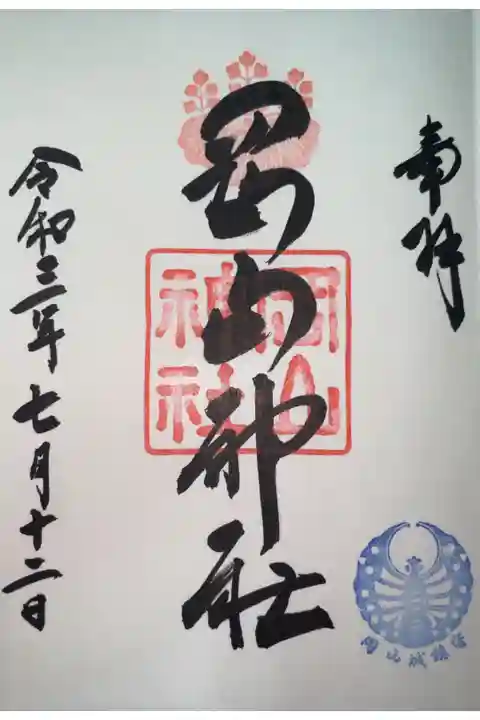 奉拝
岡山神社
岡山
神社
令和三年七月十二日
岡山城鎮守